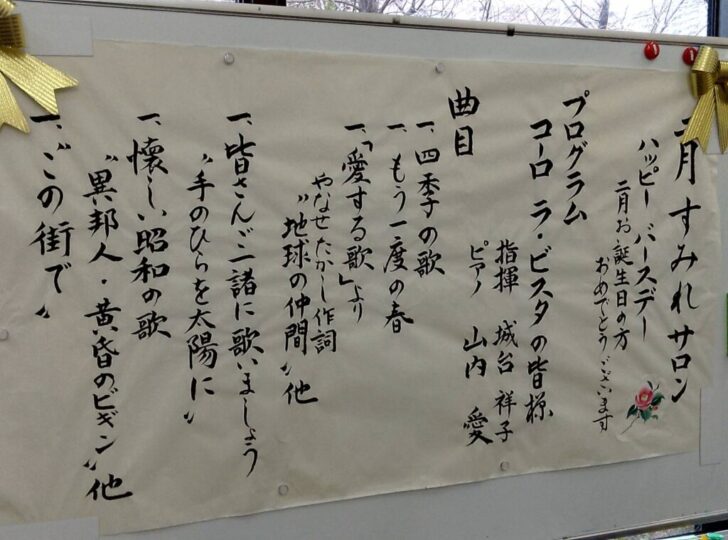 二月すみれサロン
ハッピーバースデー
二月お誕生日の方
おめでとうございます
プログラム
コーロ ラ・ビスタの皆様
指揮 城台 祥子
ピアノ 山内 愛
曲目
一、四季の歌
一、もう一度の春
一、「愛する歌」より
やなせたかし作詞
〃地球の仲間〃他
一、皆さんご一諸に歌いましょう
〃手のひらを太陽に〃
一、懐しい昭和の歌
〃異邦人・黄昏のビギン〃他
一、〃この街で〃